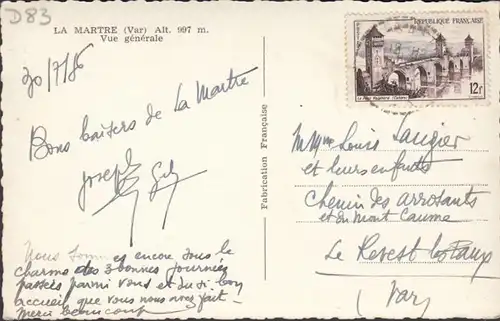 D83
LA MARTRE (Var) Alt. 997 m.
Vue générale
30/7/56
Bons baisers de La Martre
Joseph
Nous sommes encore sous le
charme des 3 bonnes journées
passées parmi vous et du si bon
accueil que vous nous avez fait -
merci beaucoup
Fabrication Française
REPUBLIQUE FRANÇAISE
Le Pont Valentré (Cahors)
12f
Louis Laugier
et leurs enfants
Chemin des arrosants
et du Mont Caume
Le Revest les Eaux
(Var)